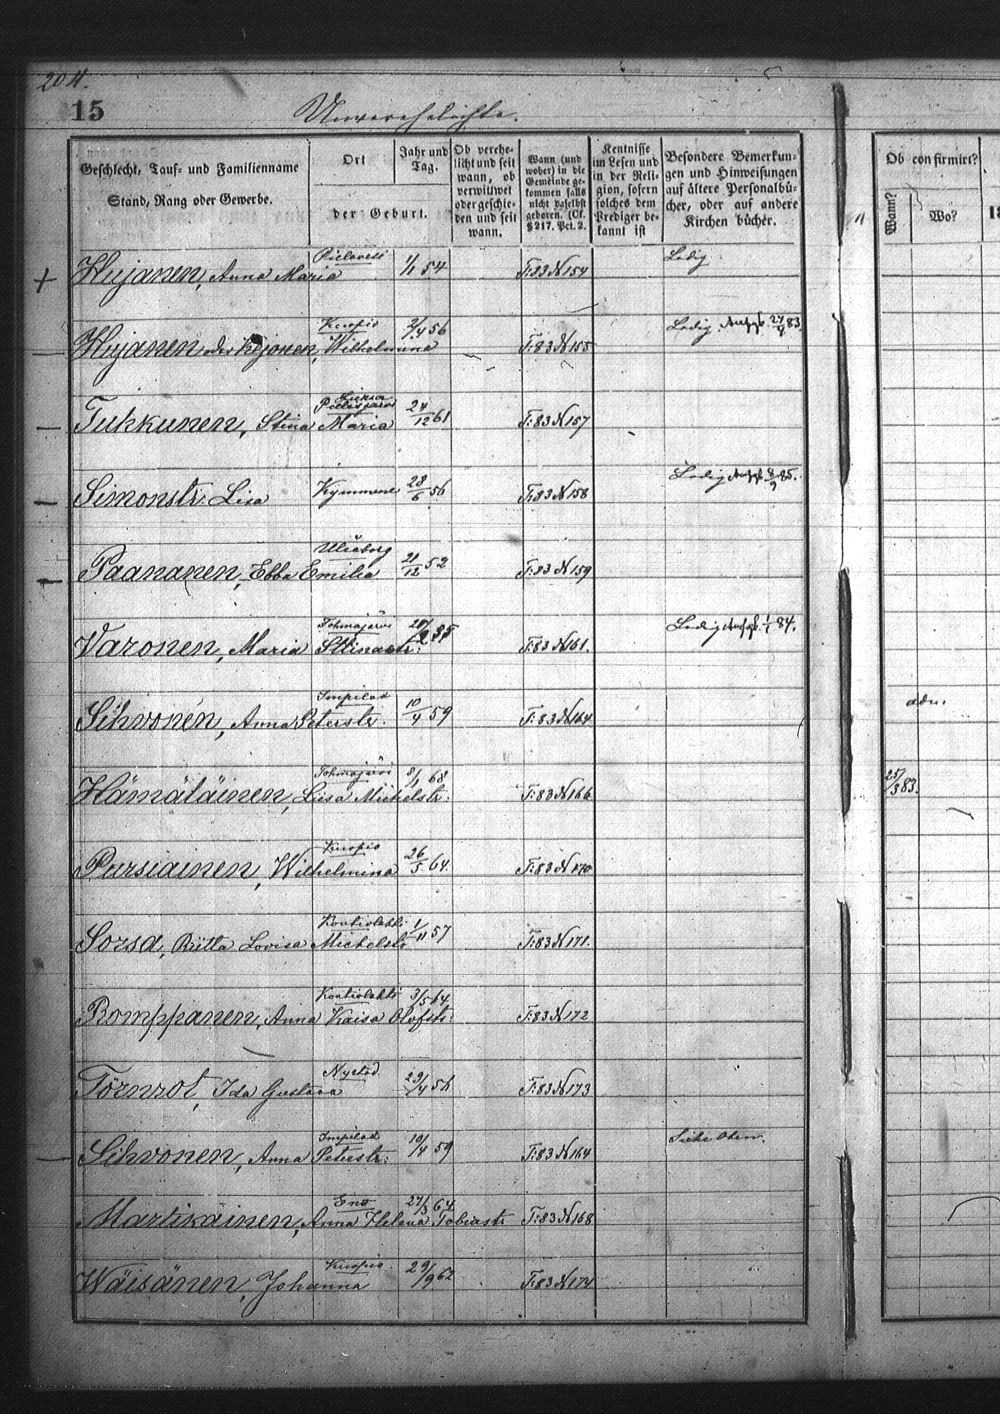 204.
15
Unverehelichte.
Geschlecht, Tauf- und Familienname
Stand, Rang oder Gewerbe.
Ort
der Geburt.
Jahr und
Tag.
Ob verehe-
licht und seit
wann, ob
verwitwet
oder geschie-
den und seit
wann.
Wann (und
woher) in die
Gemeinde ge-
kommen falls
nicht daselbst
geboren. (Cf.
§ 217. Pct. 2.
Kentnisse
im Lesen und
in der Reli-
gion, sofern
solches dem
Prediger be-
kannt ist
Besondere Bemerkun-
gen und Hinweisungen
auf ältere Personalbü-
cher, oder auf andere
Kirchen bücher.
Ob confirmirt?
Wann?
Wo?
Hujanen, Anna Maria Pielavesi 1/1 54 T:83 N 154 Ledig
Hujanen oder Kejonen, Wilhelmina Kuopio 2/4 56 T:83 N 155 Ledig. Aufgb. 24/4 83
Tukkunen, Stina Maria Pielisjärvi 24/12 61 T:83 N 157
Simonstr. Lisa Kymmene 28/6 56 T:83 N 158 Ledig Aufgb. 8/9 85.
Paananen, Ebba Emilia Uleåborg 21/12 52 T:83 N 159
Varonen, Maria Stinastr: Tohmajärvi 35 T:83 N 161. Ledig Aufgb. 1/1 84.
Sihvonen, Anna Peterstr. Impilax 10/4 59 T:83 N 164
Hämäläinen, Liisa Michelstr: Tohmajärvi 8/1 68 T:83 N 166 25/3 83.
Pursiainen, Wilhelmina Kuopio 26/5 64. T:83 N 170
Sorsa, Riitta Lovisa Michelstr Kontiolahti 1/11 57 T:83 N 171.
Romppanen, Anna Kaisa Olofstr: Kontiolahti 3/5 64. T:83 N 172
Törnrot, Ida Gustava Nystad 29/4 56 T:83 N 173
Sihvonen, Anna Peterstr: Impilax 10/4 59 T:83 N 164 Siehe Oben.
Martikainen, Anna Helena Tobiastr Eno 27/3 64 T:83 N 168
Wäisänen, Johanna Kuopio 29/9 62 T:83 N 174